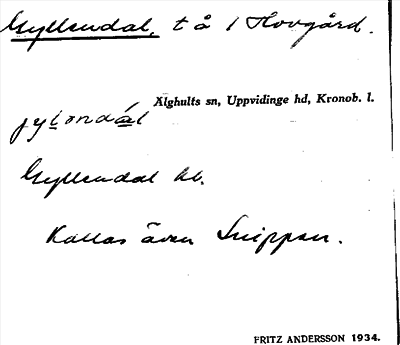 Gyllendal, t å 1 Hovgård.
Älghults sn, Uppvidinge hd, Kronob. l.
jylondál
Gyllendal hb.
Kallas även Snippen.
FRITZ ANDERSSON 1934.